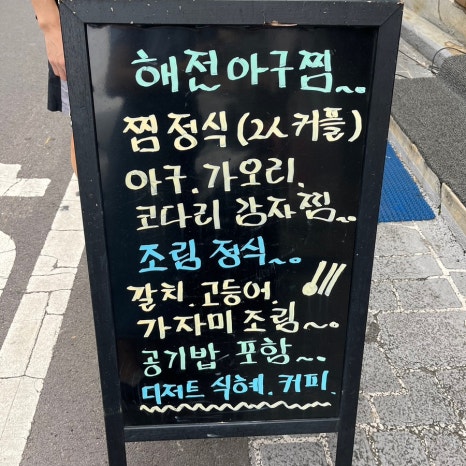 해전아구찜~.
찜정식(2人커플)
아구.가오리.
코다리 감자찜~.
조림 정식~.
갈치.고등어.
가자미조림~.
공기밥 포함~.
디저트 식혜.커피.